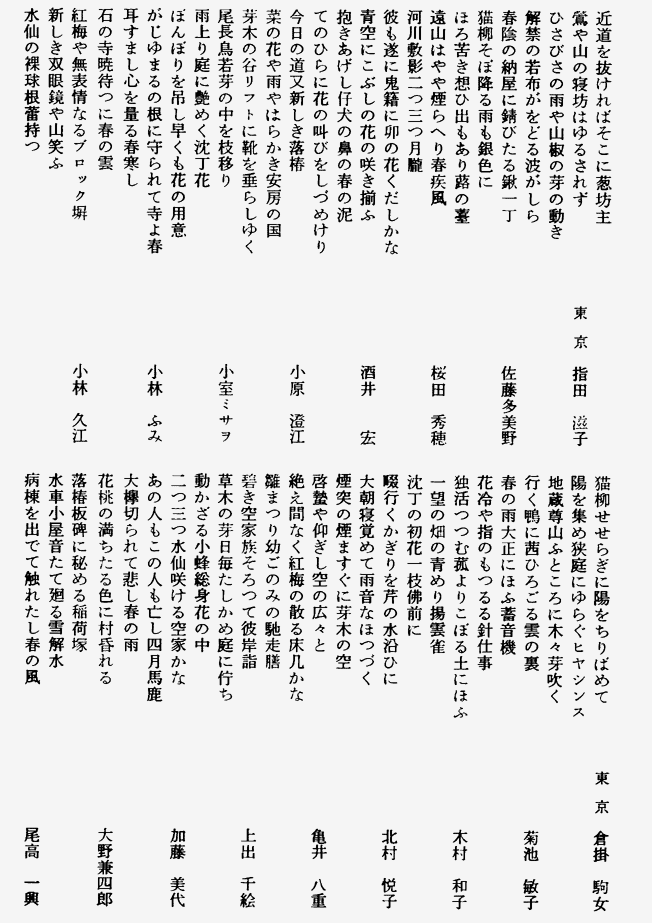 近道を抜ければそこに葱坊主
鶯や山の寝坊はゆるされず
東京 指田 滋子
ひさびさの雨や山椒の芽の動き
解禁の若布がをどる波がしら
春陰の納屋に錆びたる鍬一丁
佐藤多美野
猫柳そぼ降る雨も銀色に
ほろ苦き想ひ出もあり蕗の薹
遠山はやや煙らへり春疾風
桜田 秀穂
河川敷影二つ三つ月朧
彼も遂に鬼籍に卯の花くだしかな
青空にこぶしの花の咲き揃ふ
酒井 宏
抱きあげし仔犬の鼻の春の泥
てのひらに花の叫びをしづめけり
今日の道又新しき落椿
小原 澄江
菜の花や雨やはらかき安房の国
芽木の谷リフトに靴を垂らしゆく
尾長鳥若芽の中を枝移り
小室ミサヲ
雨上り庭に艶めく沈丁花
ぼんぼりを吊し早くも花の用意
がじゆまるの根に守られて寺よ春
小林 ふみ
耳すまし心を量る春寒し
石の寺暁待つに春の雲
紅梅や無表情なるブロック塀
小林 久江
新しき双眼鏡や山笑ふ
水仙の裸球根蕾持つ
猫柳せせらぎに陽をちりばめて
東京 倉掛 駒女
陽を集め狭庭にゆらぐヒヤシンス
地蔵尊山ふところに木々芽吹く
行く鴨に茜ひろごる雲の裏
菊池 敏子
春の雨大正にほふ蓄音機
花冷や指のもつるる針仕事
独活つつむ菰よりこぼる土にほふ
木村 和子
一望の畑の青めり揚雲雀
沈丁の初花一枝佛前に
畷行くかぎりを芹の水沿ひに
北村 悦子
大朝寝覚めて雨音なほつづく
煙突の煙ますぐに芽木の空
啓蟄や仰ぎし空の広々と
亀井 八重
絶え間なく紅梅の散る床几かな
雛まつり幼ごのみの馳走膳
碧き空家族そろつて彼岸詣
上出 千絵
草木の芽日毎たしかめ庭に佇ち
動かざる小蜂総身花の中
二つ三つ水仙咲ける空家かな
加藤 美代
あの人もこの人も亡し四月馬鹿
大欅切られて悲し春の雨
花桃の満ちたる色に村昏れる
大野兼四郎
落椿板碑に秘める稲荷塚
水車小屋音たて廻る雪解水
病棟を出でて触れたし春の風
尾高 一興